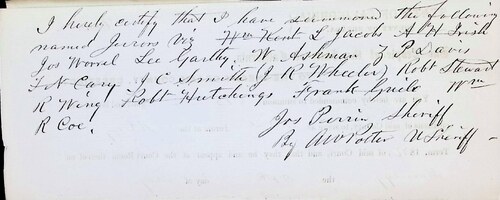 I herely certify that I have summoned the following
named Jurors Viz Wm Kent L Jacobs A H Irish
Jos Worrel Lee Garthy W Ashman Z P Davis
J C Smith (J R Wheeler) Robt Stewart
R Wing Robt Hutchings Frank Wm
R Coe.
Jos Perrin Sheriff
By A W Potter U Sheriff